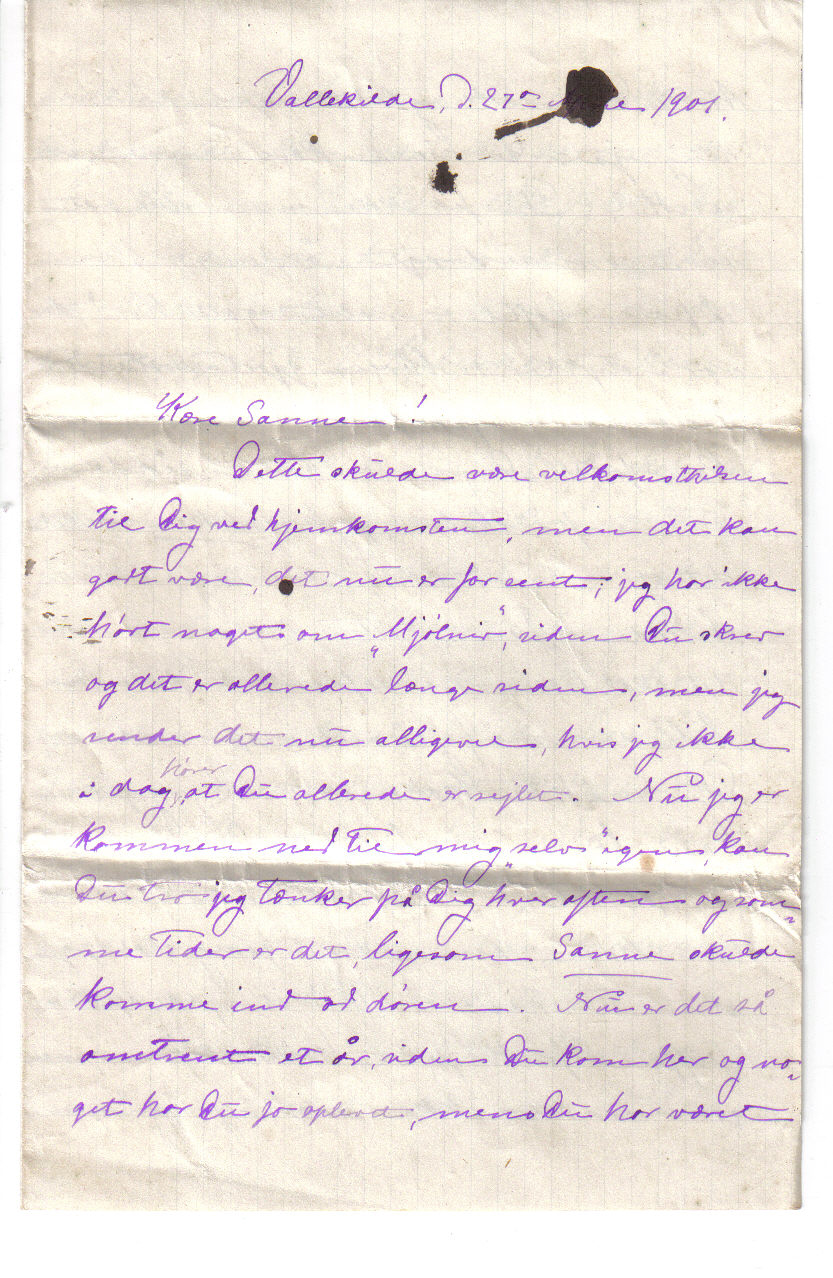 Vallekilde, d. 27de 1901.
Kære Sanne!
Dette skulde være velkomsthilsen
til Dig ved hjemkomsten, men det kan
godt være, det nu er for sent; jeg har ikke
hørt noget om „Mjölnir“, siden Du skrev
og det er allerede længe siden, men jeg
sender det nu alligevel, hvis jeg ikke
hører
i dag, at Du allerede er sejlet. Nu jeg er
kommen ned til „mig selv“ igen, kan
Du tro jeg tænker på Dig hver aften og som-
me Tider er det, ligesom Sanne skulde
komme ind ad døren. Nu er det så
omtrent et år, siden Du kom her og no-
get har Du jo oplevet, mens Du har været